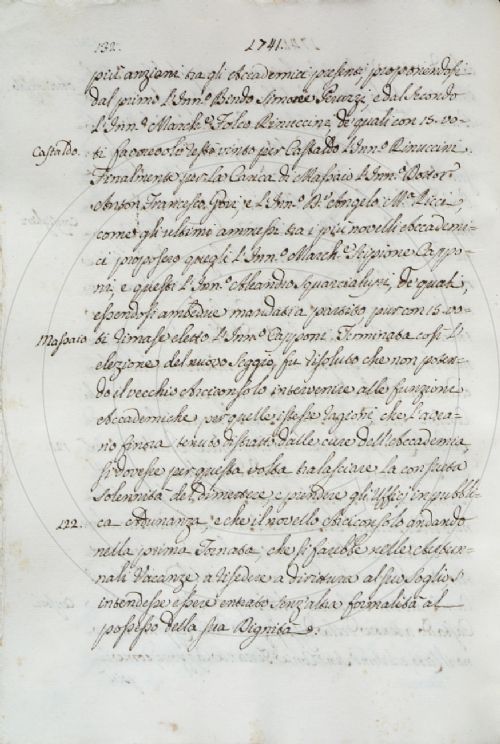 132. 1741.
più anziani tra gli Accademici presenti, proponendosi
dal primo l'Inn.º Bindo Simone Peruzzi, e dal secondo
l'Inn.º March.º Folco Rinuccini, de' quali con 15. vo-
Castaldo. ti favorevoli restò vinto per Castaldo l'Inn.º Rinuccini
Finalmente per la Carica di Massaio l'Inn.º Dottor
Anton Francesco Gori, e l'Inn.º D.r Angelo M.ª Ricci,
come gli ultimi ammessi tra i più novelli Accademi-
ci proposero quegli l'Inn.º March.º Scipione Cappo-
ni, e questi l'Inn.º Squarcialupi, de' quali,
essendosi ambedue mandati a partito pur con 15. vo-
Massaio ti rimase eletto l'Inn.º Capponi. Terminata così l'
elezione del nuovo Seggio, fu risoluto che non poten-
do il vecchio Arciconsolo intervenire alle funzioni
Accademiche, per quelle istesse ragioni che l'avea-
no finora tenuto distratto dalle cure dell'Accademia,
si dovesse per questa volta tralasciare la consueta
solennità del dimettere e prendere gli Uffici in pubbli-
122. ca Adunanza, e che il novello Arciconsolo andando
nella prima Tornata, che si farebbe nelle Autun-
nali Vacanze a risedere a dirittura al suo soglio s'
intendesse essere entrato senz'altra formalità al
possesso della sua Dignità